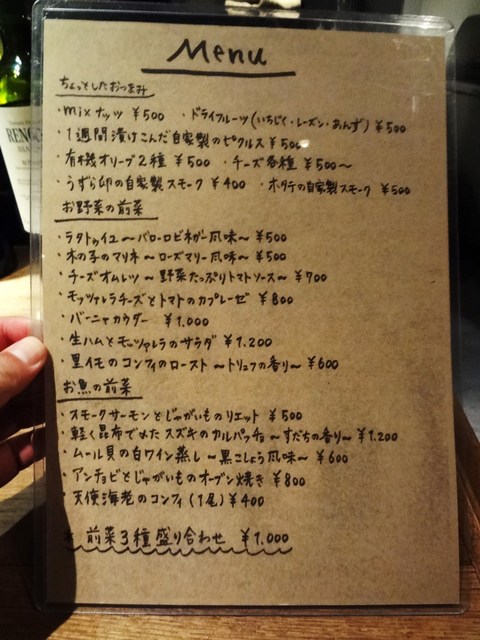 Menu
ちょっとしたおつまみ
・mixナッツ ¥500 ・ドライフルーツ(いちじく・レーズン・あんず) ¥500
・1週間漬けこんだ自家製のピクルス ¥500
・有機オリーブ2種 ¥500 ・チーズ各種 ¥500〜
・うずら卵の自家製スモーク ¥400 ・ホタテの自家製スモーク ¥500
お野菜の前菜
・ラタトゥイユ〜バローロビネガー風味〜 ¥500
・木の子のマリネ〜ローズマリー風味〜 ¥500
・チーズオムレツ〜野菜たっぷりトマトソース〜 ¥700
・モッツァレラチーズとトマトのカプレーゼ ¥800
・バーニャカウダー ¥1.000
・生ハムとモッツァレラのサラダ ¥1.200
・里イモのコンフィのロースト〜トリュフの香り〜 ¥600
お魚の前菜
・スモークサーモンとじゃがいものリエット ¥500
・軽く昆布でめたスズキのカルパッチョ〜すだちの香り〜 ¥1.200
・ムール貝の白ワイン蒸し〜黒こしょう風味〜 ¥600
・アンチョビとじゃがいものオーブン焼き ¥800
・天使海老のコンフィ(1尾) ¥400
前菜3種盛り合わせ ¥1.000